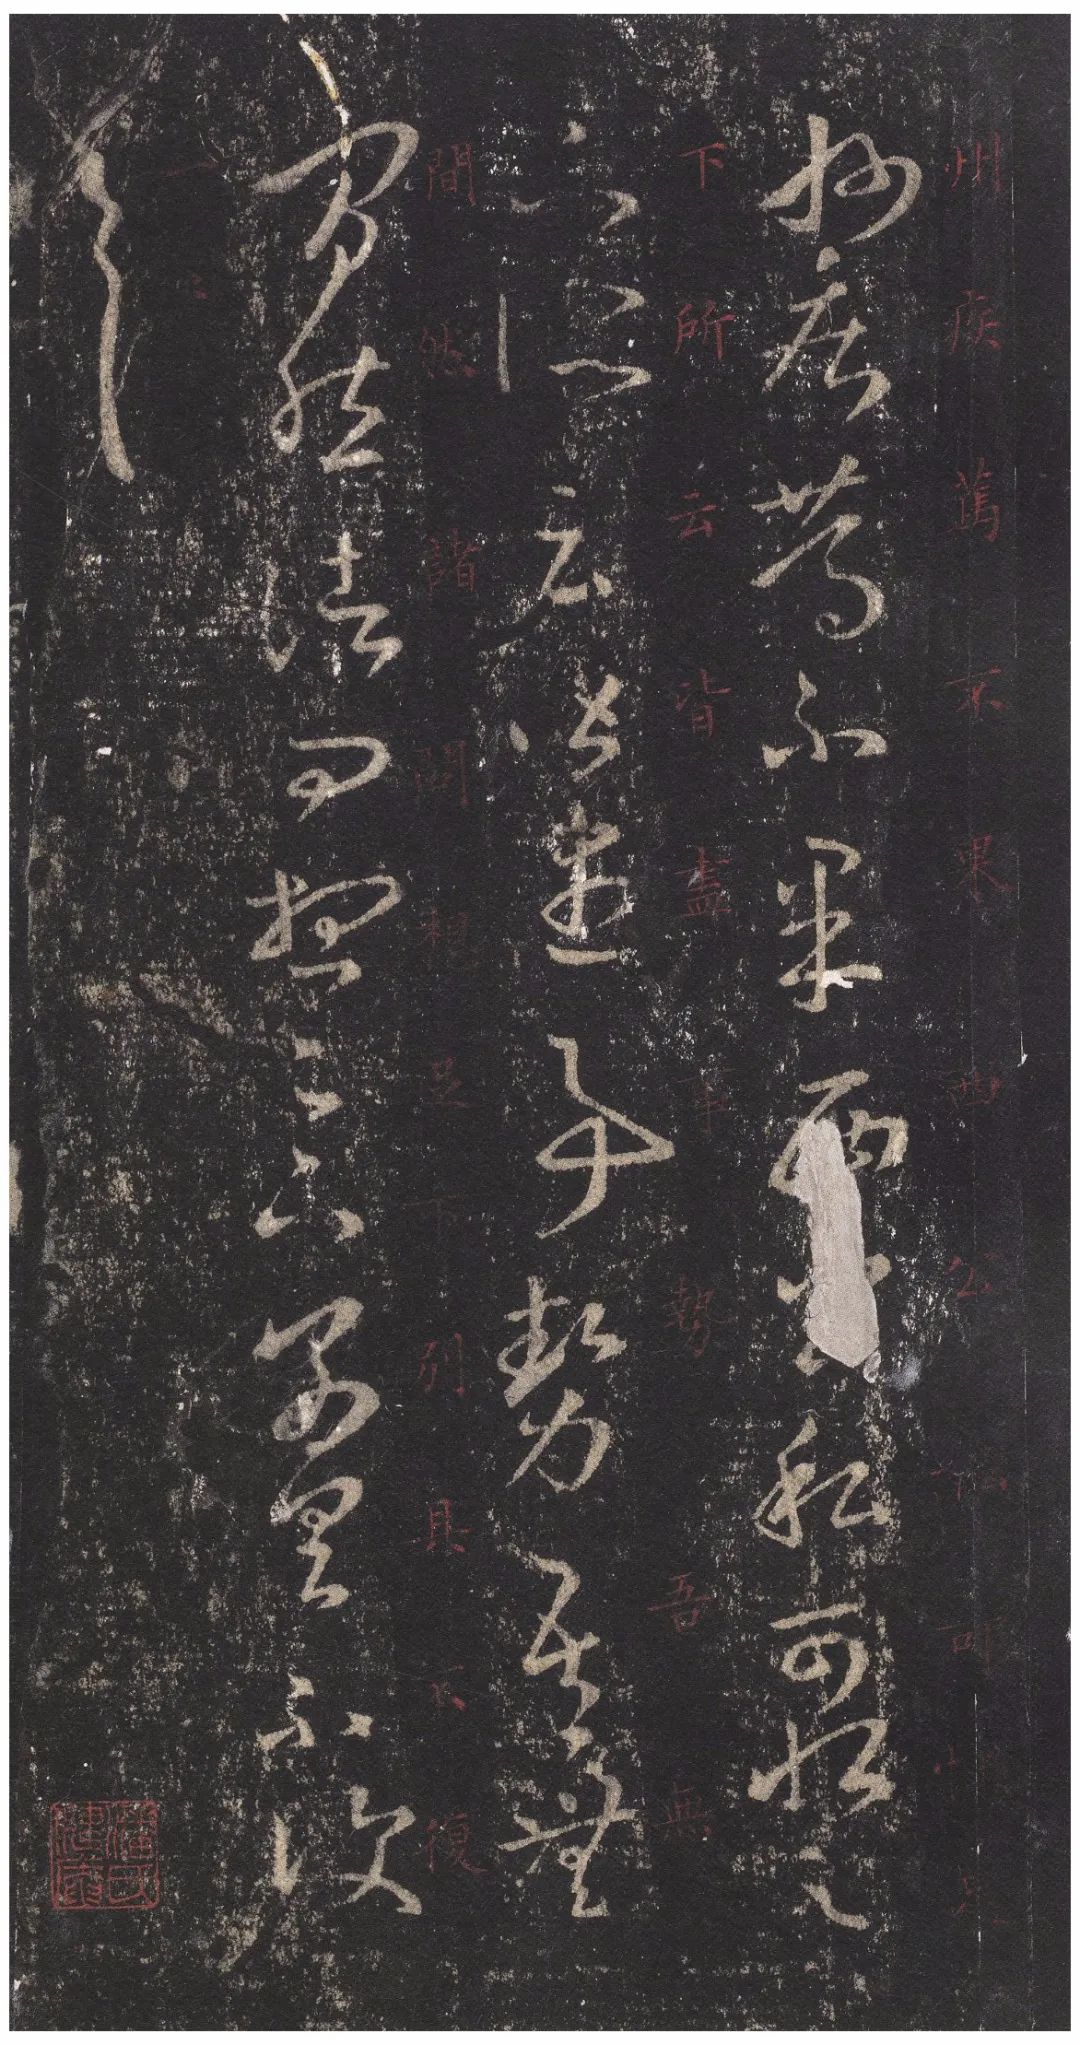 州疾篤不果西公私可恨足
州疾篤不果西公私可恨足
下所云皆盡事勢吾無
下所云皆盡事勢吾無
間然諸問想足下別具不復
間然諸問想足下別具不復
一一
一一